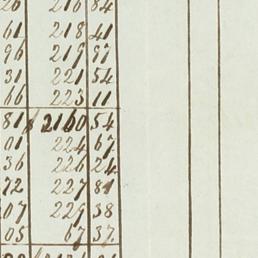 26 216 84
61 218 41
96 219 97
31 221 54
66 223 11
81 $2160 54
01 224 67
36 226 24
72 227 81
07 229 38
05 67 37